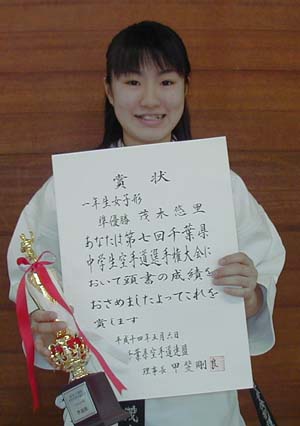 賞状
一年生女子形
準優勝 茂木悠里
あなたは第七回千葉県
中学生空手道選手権大会に
おいて頭書の成績を
おさめましたよってこれを
賞します
平成十四年五月六日
千葉県空手道連盟
理事長 甲斐剛良